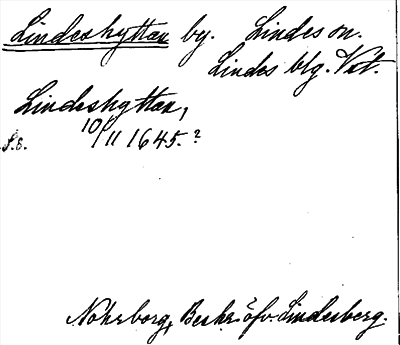 Lindeshyttan by. Lindes sn.
Lindes blg. Vst.
Lindeshyttan,
10/11 1645.?
Nohrborg, Beskr. öfv. Lindesberg.